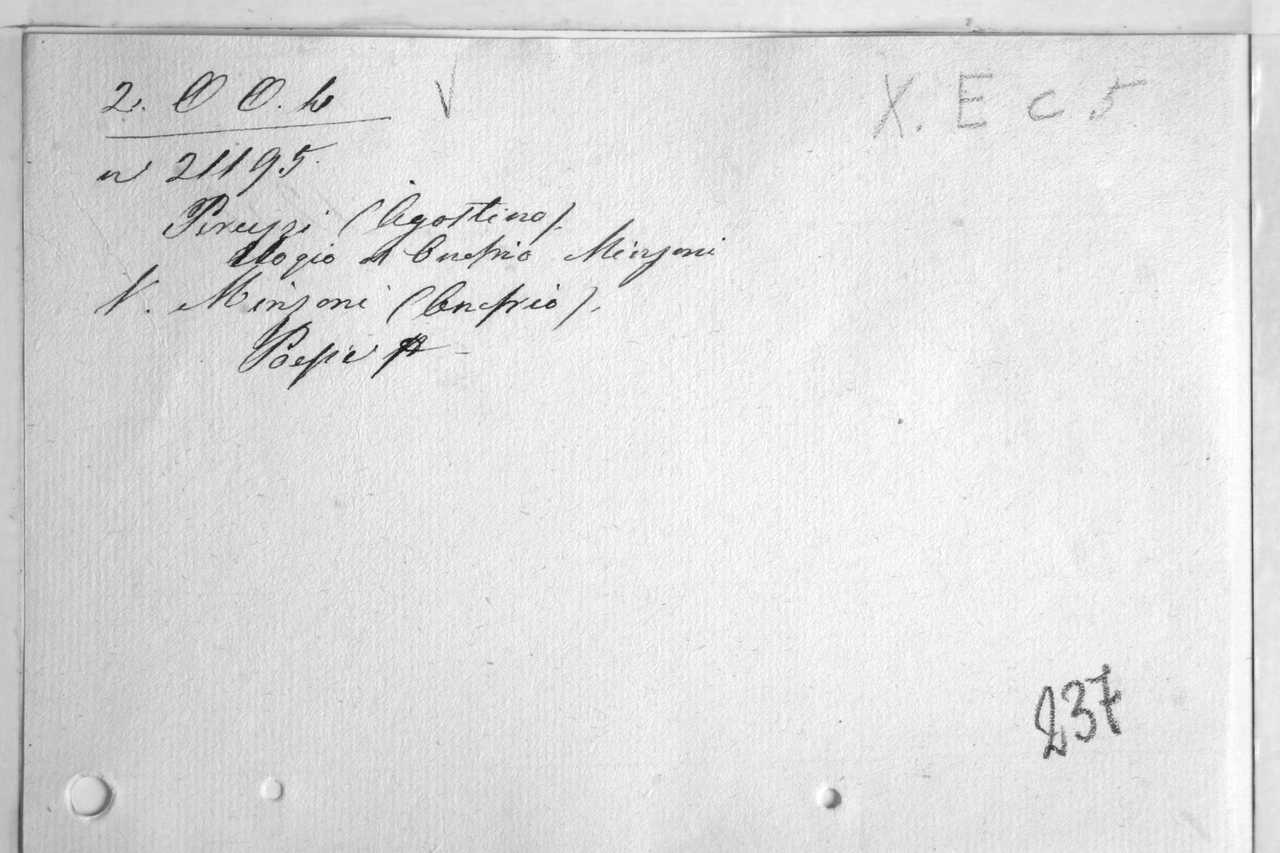 2. O O. b V X. E c 5
n 21195.
Peruzzi (Agostino).
Elogio di Onofrio Minzoni
V. Minzoni (Onofrio).
Poesie
237